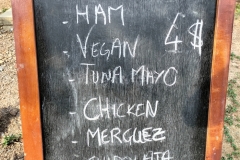 - HAM
- VEGAN 4$
- TUNA MAYO
- CHICKEN
- MERGUEZ
-